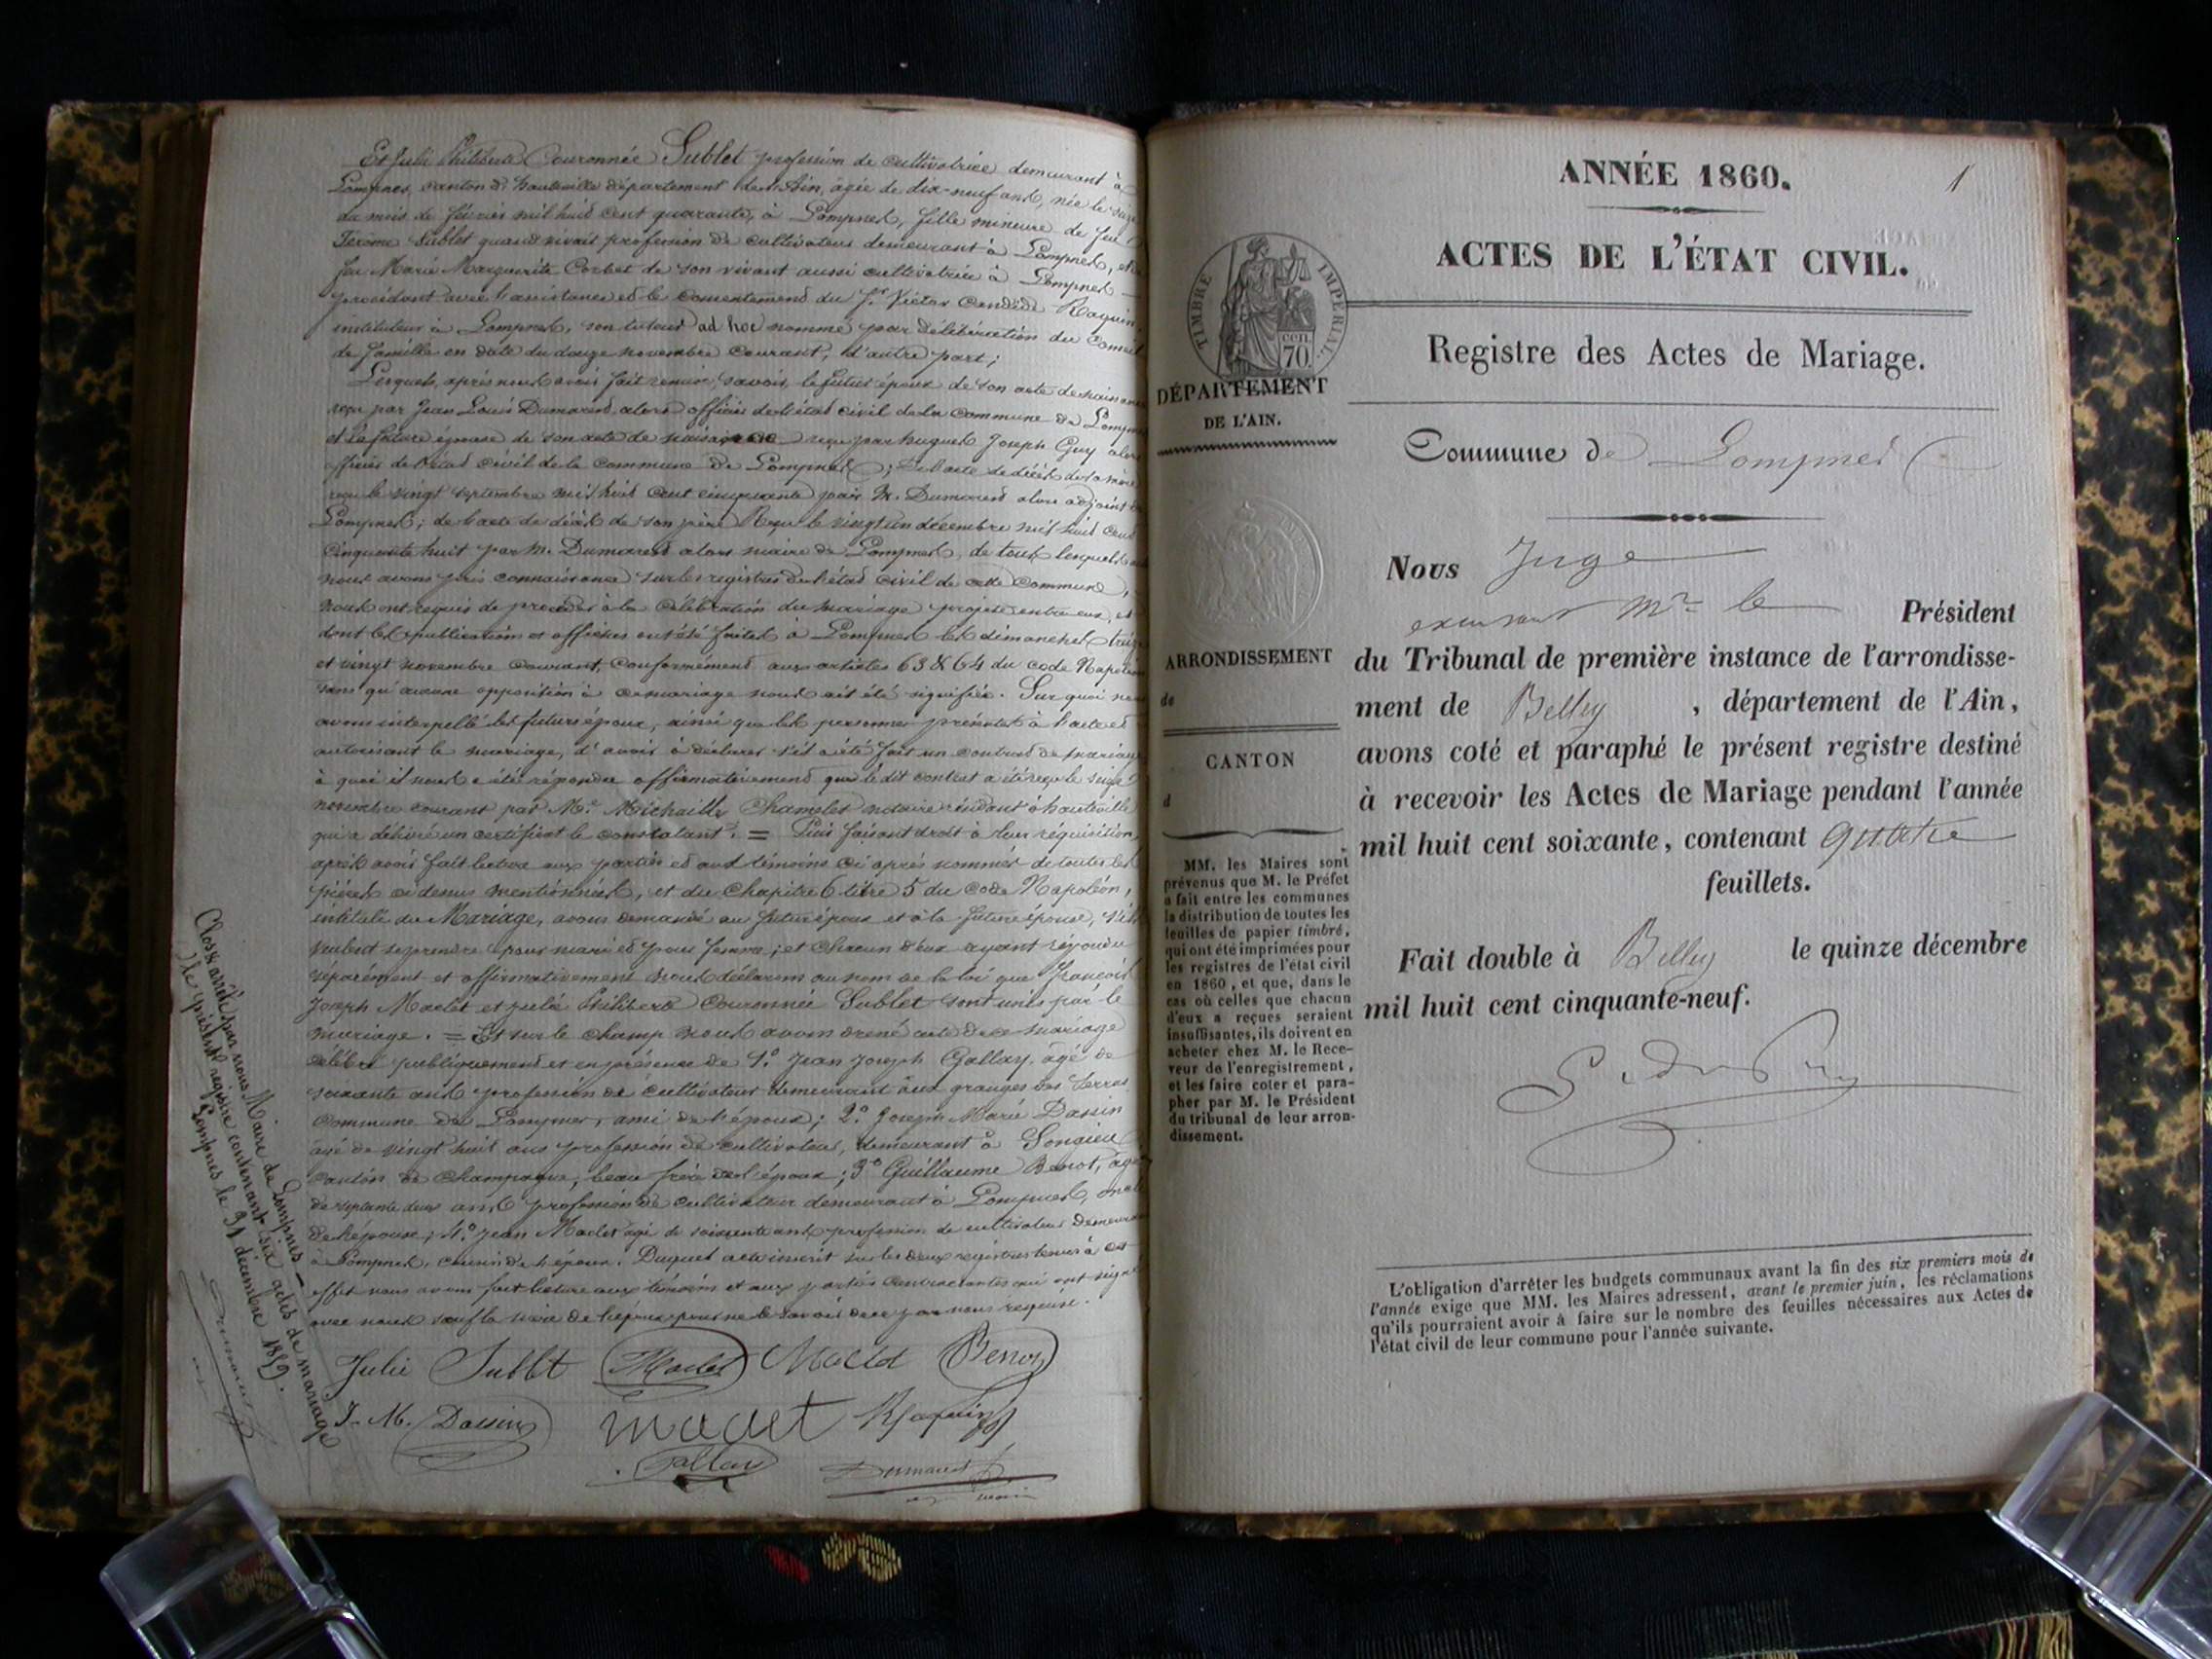 Et Julie Philiberte Couronnée Sublet profession de cultivatrice demeurant à
Lompnes, canton d'hauteville département de l'Ain, âgée de dix-neuf ans, née le
du mois de février mil huit cent quarante, à Lompnes, fille mineure de feu
Jérôme Sublet quand vivait profession de cultivateur demeurant à Lompnes, et de
feu Marie Marguerite Corbet de son vivant aussi cultivatrice à Lompnes
procédant avec l'assistance et le consentement du Sr Victor Candide Raquin
instituteur à Lompnes, son tuteur ad hoc nommé par délibération du Conseil
de famille en date du douze novembre courant, d'autre part ;
Lesquels, après nous avoir fait remise, savoir, le futur époux de son acte de naissance
reçu par Jean Louis Dumarest, alors officier de l'état civil de la commune de Lompnes
et la future épouse de son acte de naissance reçu par huguet Joseph Guy alors
officier de l'état civil de la commune de Lompnes ; de l'acte de décès de sa mère
reçu le vingt septembre mil huit cent cinquante par M. Dumarest alors adjoint de
Lompnes ; de l'acte de décès de son père Reçu le vingt un décembre mil huit cent
cinquante huit par M. Dumarest alors maire de Lompnes, de tous lesquels
nous avons pris connaissance sur les registres de l'état civil de cette commune,
nous ont requis de procéder à la célébration du mariage projeté entre eux, et
dont les publications et affiches ont été faites à Lompnes les dimanches treize
et vingt novembre courant, conformément aux articles 63 & 64 du code Napoléon
sans qu'aucune opposition à ce mariage nous ait été signifiée. Sur quoi nous
avons interpellé les futurs époux, ainsi que les personnes présentes à l'acte et
autorisant le mariage, d'avoir à déclarer s'il a été fait un contrat de mariage
à quoi il nous a été répondu affirmativement que le dit contrat a été reçu le seize
novembre courant par Me. Michaille Chamelet notaire résidant à hauteville
qui a délivré un certificat le constatant. = Puis faisant droit à leur réquisition
après avoir fait lecture aux parties et aux témoins ci après nommés de toutes les
pièces ci dessus mentionnées, et du chapitre 6 titre 5 du code Napoléon,
intitulé du Mariage, avons demandé au futur époux et à la future épouse, s'ils
veulent se prendre pour mari et pour femme ; et chacun d'eux ayant répondu
séparément et affirmativement nous déclarons au nom de la loi que François
Joseph Maclet et Julie Philiberte Couronnée Sublet sont unis par le
mariage. = Et sur le champ nous avons dressé acte de ce mariage
célébré publiquement et en présence de 1.° Jean Joseph Gallay, âgé de
soixante ans profession de cultivateur demeurant aux granges des terres
commune de Lompnes, ami de l'époux ; 2.° Joseph Marie Dassin
âgé de vingt huit ans profession de cultivateur, demeurant à Songieu
canton de Champagne, beau frère de l'époux ; 3° Guillaume Benot, âgé
de septante deux ans profession de cultivateur demeurant à Lompnes, oncle
de l'épouse ; 4.° Jean Maclet âgé de soixante ans profession de cultivateur demeurant
à Lompnes, cousin de l'époux. Duquel acte inscrit sur les deux registres tenus à cet
effet nous avons fait lecture aux témoins et aux parties contractantes qui ont signé
avec nous sauf la mère de l'époux pour ne le savoir de ce par nous requise.
Julie Sublet Maclet Maclet Benot
J. M. Dassin Maclet Raquin
Gallay Dumarest
maire
Clos & arrêté par nous Maire de Lompnes
le présent registre contenant six actes de mariage
Lompnes le 31 décembre 1859.
Dumarest
1
ANNÉE 1860.
ACTES DE L'ÉTAT CIVIL.
TIMBRE IMPÉRIAL
cen. 70
Registre des Actes de Mariage.
DÉPARTEMENT
DE L'AIN.
Commune de Lompnes
Nous Juge
excusant Mr le Président
du Tribunal de première instance de l'arrondisse-
ment de Belley , département de l'Ain,
avons coté et paraphé le présent registre destiné
à recevoir les Actes de Mariage pendant l'année
mil huit cent soixante, contenant quatre
feuillets.
Fait double à Belley le quinze décembre
mil huit cent cinquante-neuf.
ARRONDISSEMENT
de
CANTON
d
MM. les Maires sont
prévenus que M. le Préfet
a fait entre les communes
la distribution de toutes les
feuilles de papier timbré,
qui ont été imprimées pour
les registres de l'état civil
en 1860, et que, dans le
cas où celles que chacun
d'eux a reçues seraient
insuffisantes, ils doivent en
acheter chez M. le Rece-
veur de l'enregistrement,
et les faire coter et para-
pher par M. le Président
du tribunal de leur arron-
dissement.
L'obligation d'arrêter les budgets communaux avant la fin des six premiers mois de
l'année exige que MM. les Maires adressent, avant le premier juin, les réclamations
qu'ils pourraient avoir à faire sur le nombre des feuilles nécessaires aux Actes de
l'état civil de leur commune pour l'année suivante.